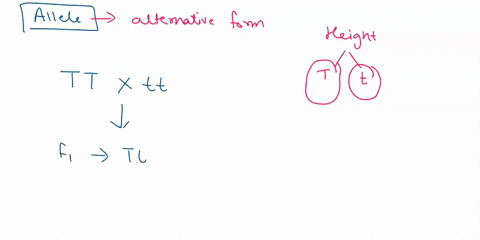 Allele → alternative form
Height
T t
TT x tt
↓
F₁ → Tt